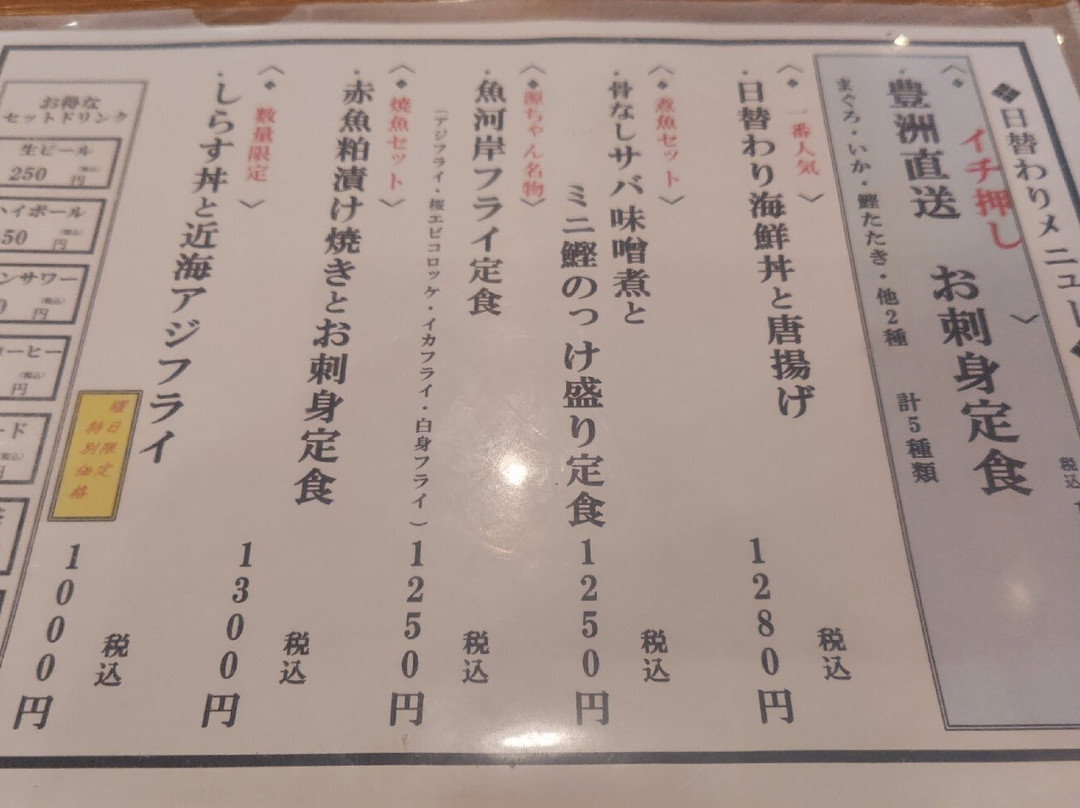 ❖日替わりメニュー
〈◆イチ押し〉
・豊洲直送 お刺身定食
まぐろ・いか・鰹たたき・他2種 計5種類
税込
〈◆一番人気〉
・日替わり海鮮丼と唐揚げ
税込
1280円
〈◆煮魚セット〉
・骨なしサバ味噌煮と
ミニ鰹のっけ盛り定食
税込
1250円
〈◆源ちゃん名物〉
・魚河岸フライ定食
(アジフライ・桜エビコロッケ・イカフライ・白身フライ)
税込
1250円
〈◆焼魚セット〉
・赤魚粕漬け焼きとお刺身定食
税込
1300円
〈◆数量限定〉
・しらす丼と近海アジフライ
曜日限定
特別価格
税込
1000円
お得な
セットドリンク
生ビール
250円(税込)
ハイボール
50円(税込)
ンサワー
円(税込)
コーヒー
円(税込)
ド
円(税込)